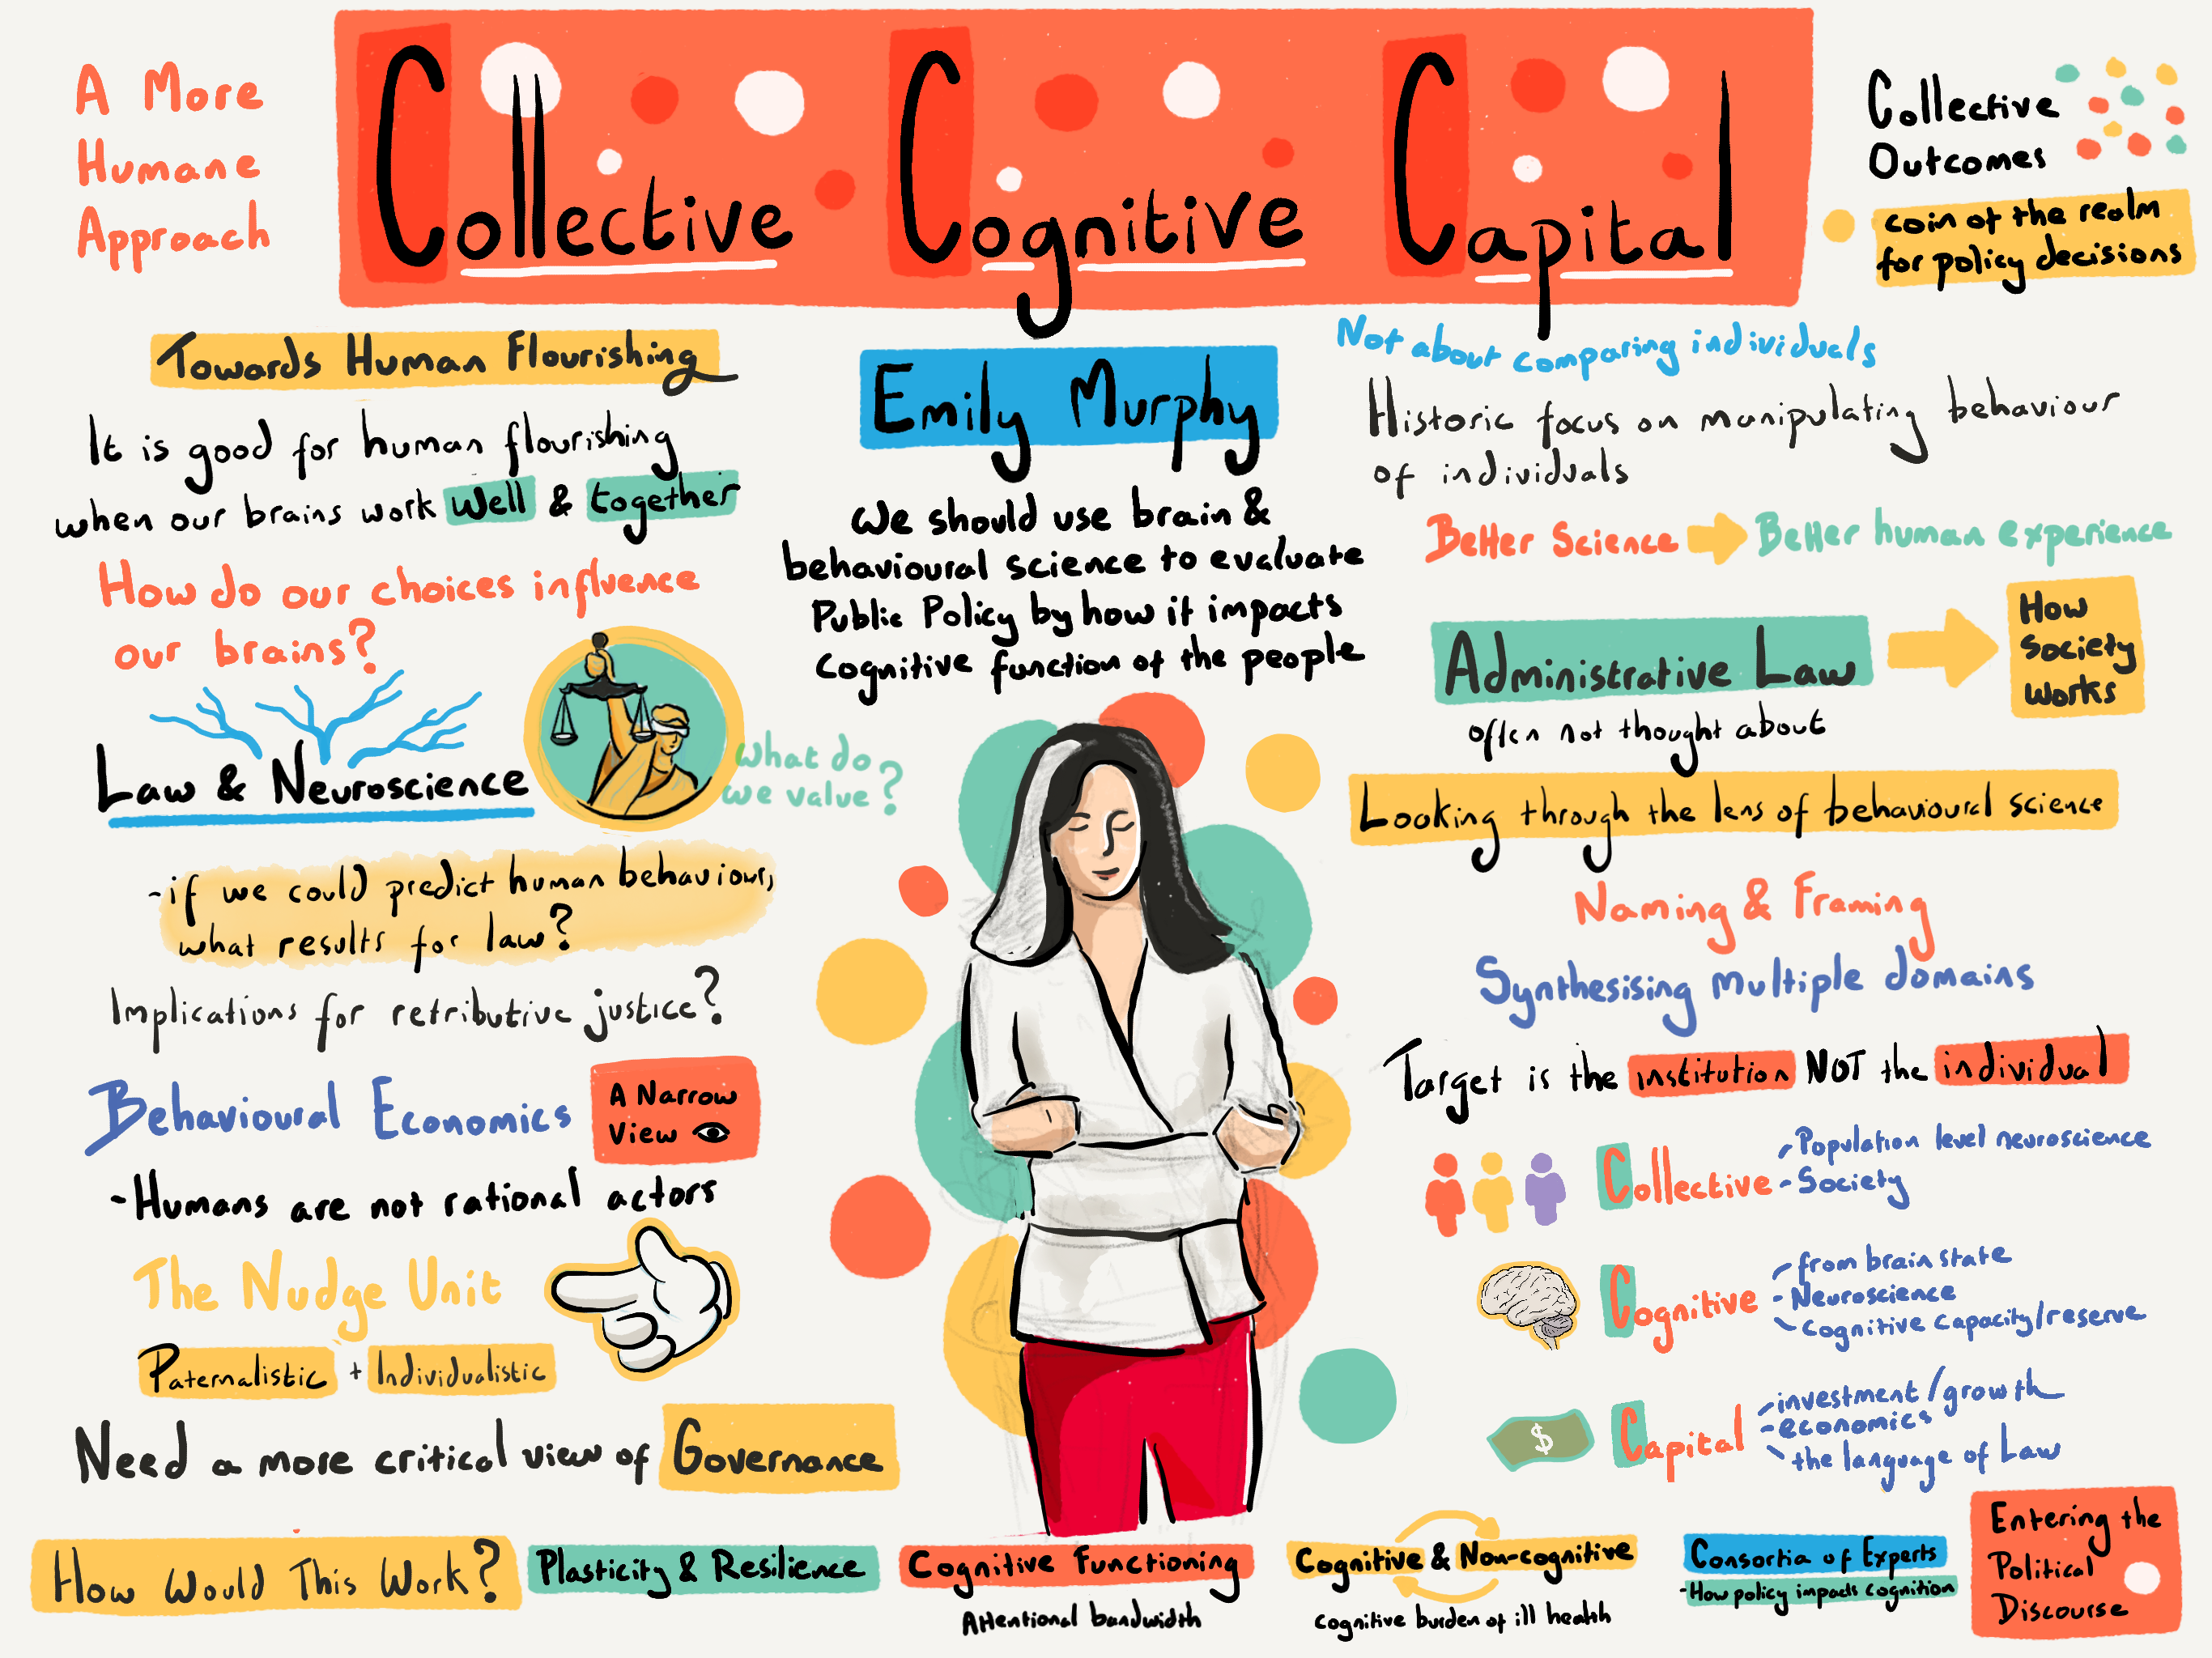 A More
Humane
Approach
Collective Cognitive Capital
Collective
Outcomes
coin of the realm
for policy decisions
Towards Human Flourishing
It is good for human flourishing
when our brains work well & together
How do our choices influence
our brains?
Law & Neuroscience
What do
we value?
-if we could predict human behaviour,
what results for law?
Implications for retributive justice?
Behavioural Economics
A Narrow
View
-Humans are not rational actors
The Nudge Unit
Paternalistic + Individualistic
Need a more critical view of Governance
Emily Murphy
We should use brain &
behavioural science to evaluate
Public Policy by how it impacts
Cognitive function of the people
Not about comparing individuals
Historic focus on manipulating behaviour
of individuals
Better Science
Better human experience
Administrative Law
often not thought about
How
Society
works
Looking through the lens of behavioural science
Naming & Framing
Synthesising multiple domains
Target is the institution NOT the individual
Collective
-Population level neuroscience
-Society
Cognitive
-from brain state
-Neuroscience
-Cognitive capacity/reserve
$
Capital
-investment/growth
-economics
-the language of Law
How Would This Work?
Plasticity & Resilience
Cognitive Functioning
Attentional bandwidth
Cognitive & Non-cognitive
Cognitive burden of ill health
Consortia of Experts
-How policy impacts cognition
Entering the
Political
Discourse